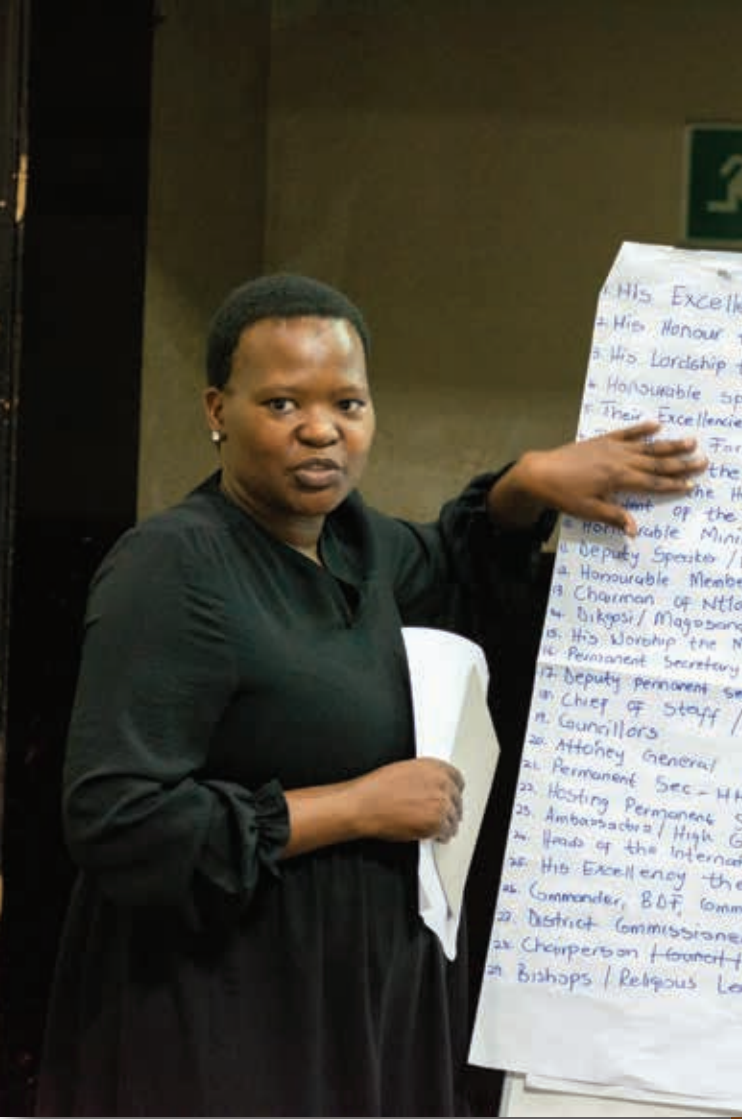 1. His Excelle
2. His Honour
3. His Lordship
4. Honourable sp
5. Their Excellencie
For
the
the H
dent of the
Honourable Mini
11. Deputy Speaker /
12. Honourable Membe
13. Chairman of Ntlo
14. Dikgosi / Magosana
15. His Worship the M
16. Permanent Secretary
17. Deputy permanent se
18. Chief of Staff /
19. Councillors
20. Attorney General
21. Permanent Sec - MH
22. Hosting Permanent S
23. Ambassadors / High C
24. Heads of the Internat
25. His Excellency the
26. Commander, BDF, Comm
27. District Commissione
28. Chairperson
29. Bishops / Religous Le